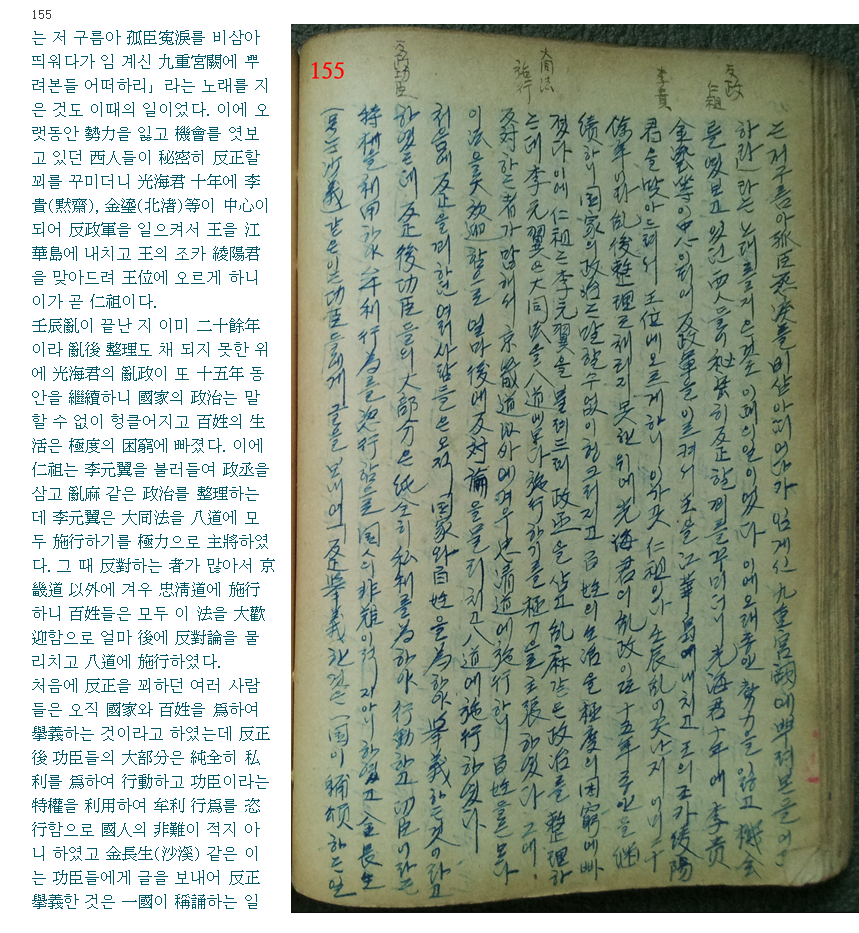 155
는 저 구름아 孤臣寃淚를 비삼아
띄워다가 임 계신 九重宮闕에 뿌
려본들 어떠하리」라는 노래를 지
은 것도 이때의 일이었다. 이에 오
랫동안 勢力을 잃고 機會를 엿보
고 있던 西人들이 秘密히 反正할
꾀를 꾸미더니 光海君 十年에 李
貴(黙齋), 金瑬(北渚)等이 中心이
되어 反政軍을 일으켜서 王을 江
華島에 내치고 王의 조카 綾陽君
을 맞아드려 王位에 오르게 하니
이가 곧 仁祖이다.
壬辰亂이 끝난 지 이미 二十餘年
이라 亂後 整理도 채 되지 못한 위
에 光海君의 亂政이 또 十五年 동
안을 繼續하니 國家의 政治는 말
할 수 없이 헝클어지고 百姓의 生
活은 極度의 困窮에 빠졌다. 이에
仁祖는 李元翼을 불러들여 政丞을
삼고 亂麻 같은 政治를 整理하는
데 李元翼은 大同法을 八道에 모
두 施行하기를 極力으로 主將하였
다. 그 때 反對하는 者가 많아서 京
畿道 以外에 겨우 忠清道에 施行
하니 百姓들은 모두 이 法을 大歡
迎함으로 얼마 後에 反對論을 물
리치고 八道에 施行하였다.
처음에 反正을 꾀하던 여러 사람
들은 오직 國家와 百姓을 爲하여
擧義하는 것이라고 하였는데 反正
後 功臣들의 大部分은 純全히 私
利를 爲하여 行動하고 功臣이라는
特權을 利用하여 牟利 行爲를 恣
行함으로 國人의 非難이 적지 아
니 하였고 金長生(沙溪) 같은 이
는 功臣들에게 글을 보내어 反正
擧義한 것은 一國이 稱誦하는 일
155
反政
仁祖
李貴
大同法
施行
反政功臣
는 저 구름아 孤臣寃淚를 비삼아 띄어다가 임 계신 九重宮闕에 뿌려본들 어떠
하리」라는 노래를 지은 것도 이때의 일이었다 이에 오래동안 勢力을 잃고 機會
를 엿보고 있던 西人들이 秘密히 反正할 꾀를 꾸미더니 光海君十年에 李貴
金瑬等이 中心이 되어 反政軍을 이르켜서 王을 江華島에 내치고 王의 조카 綾陽
君을 맞아드려서 王位에 오르게 하니 이가 곳 仁祖이다 壬辰亂이 끗나지 이미 二十
餘年이라 亂後整理도 채 되지 못한 위에 光海君의 亂政이 또 十五年 동안을 繼
續하니 國家의 政治는 말할 수 없이 헝크러지고 百姓의 生活은 極度의 困窮에 빠
졌다 이에 仁祖는 李元翼을 불러드려 政丞을 삼고 亂麻같은 政治를 整理하
는데 李元翼은 大同法을 八道에 모다 施行하기를 極力을 主張하였다 그때
反對하는 者가 많애서 京畿道以外에 겨우 忠淸道에 施行하니 百姓들은 모다
이 法을 大歡迎함으로 얼마 後에 反對論을 물리치고 八道에 施行하였다
처음에 反正을 꾀하던 여러 사람들은 오직 國家와 百姓을 爲하야 擧義하는 것이라고
하였는데 反正後 功臣들의 大部分은 純全히 私利를 爲하야 行動하고 功臣이라는
特權을 利用하야 牟利行爲를 恣行함으로 國人의 非難이 적지 아니하였고 金長生
(号는 沙溪) 같은 이는 功臣들에게 글을 보내여 反正擧義한 것은 一國이 稱頌하는 일